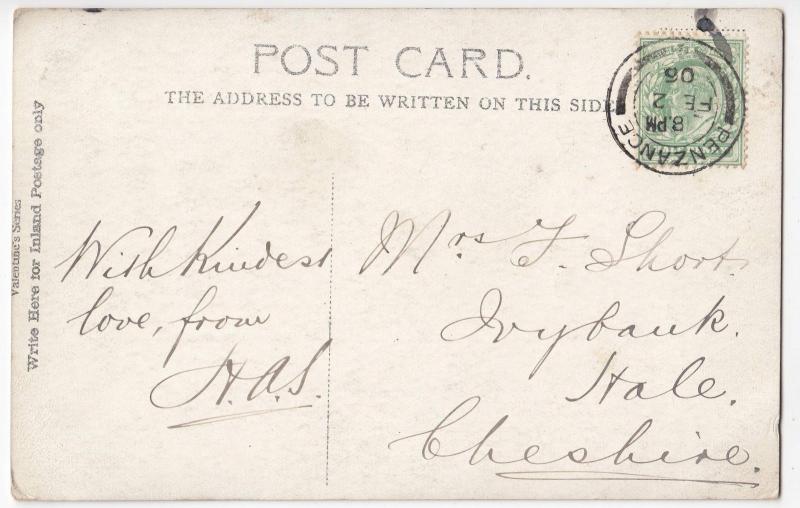 POST CARD.
THE ADDRESS TO BE WRITTEN ON THIS SIDE
PENZANCE
8.PM
FE 2
06
Valentine's Series
Write Here for Inland Postage only
With Kindest
love, from
H.A.S.
Mrs F. Short.
Ivybank.
Hale.
Cheshire.